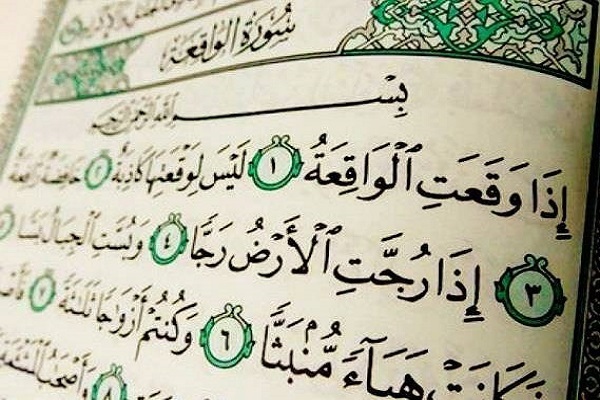 سُورَةُ الوَاقِعَةِ
بِسْمِ ٱللَّهِ ٱلرَّحْمَٰنِ ٱلرَّحِيمِ
إِذَا وَقَعَتِ ٱلْوَاقِعَةُ ١ لَيْسَ لِوَقْعَتِهَا كَاذِبَةٌ ٢ خَافِضَةٌ رَّافِعَةٌ
٣ إِذَا رُجَّتِ ٱلْأَرْضُ رَجًّا ٤ وَبُسَّتِ ٱلْجِبَالُ بَسًّا
فَكَانَتْ هَبَآءً مُّنۢبَثًّا ٦ وَكُنتُمْ أَزْوَاجًا ثَلَٰثَةً ٧
٨ وَأَصْحَٰبُ